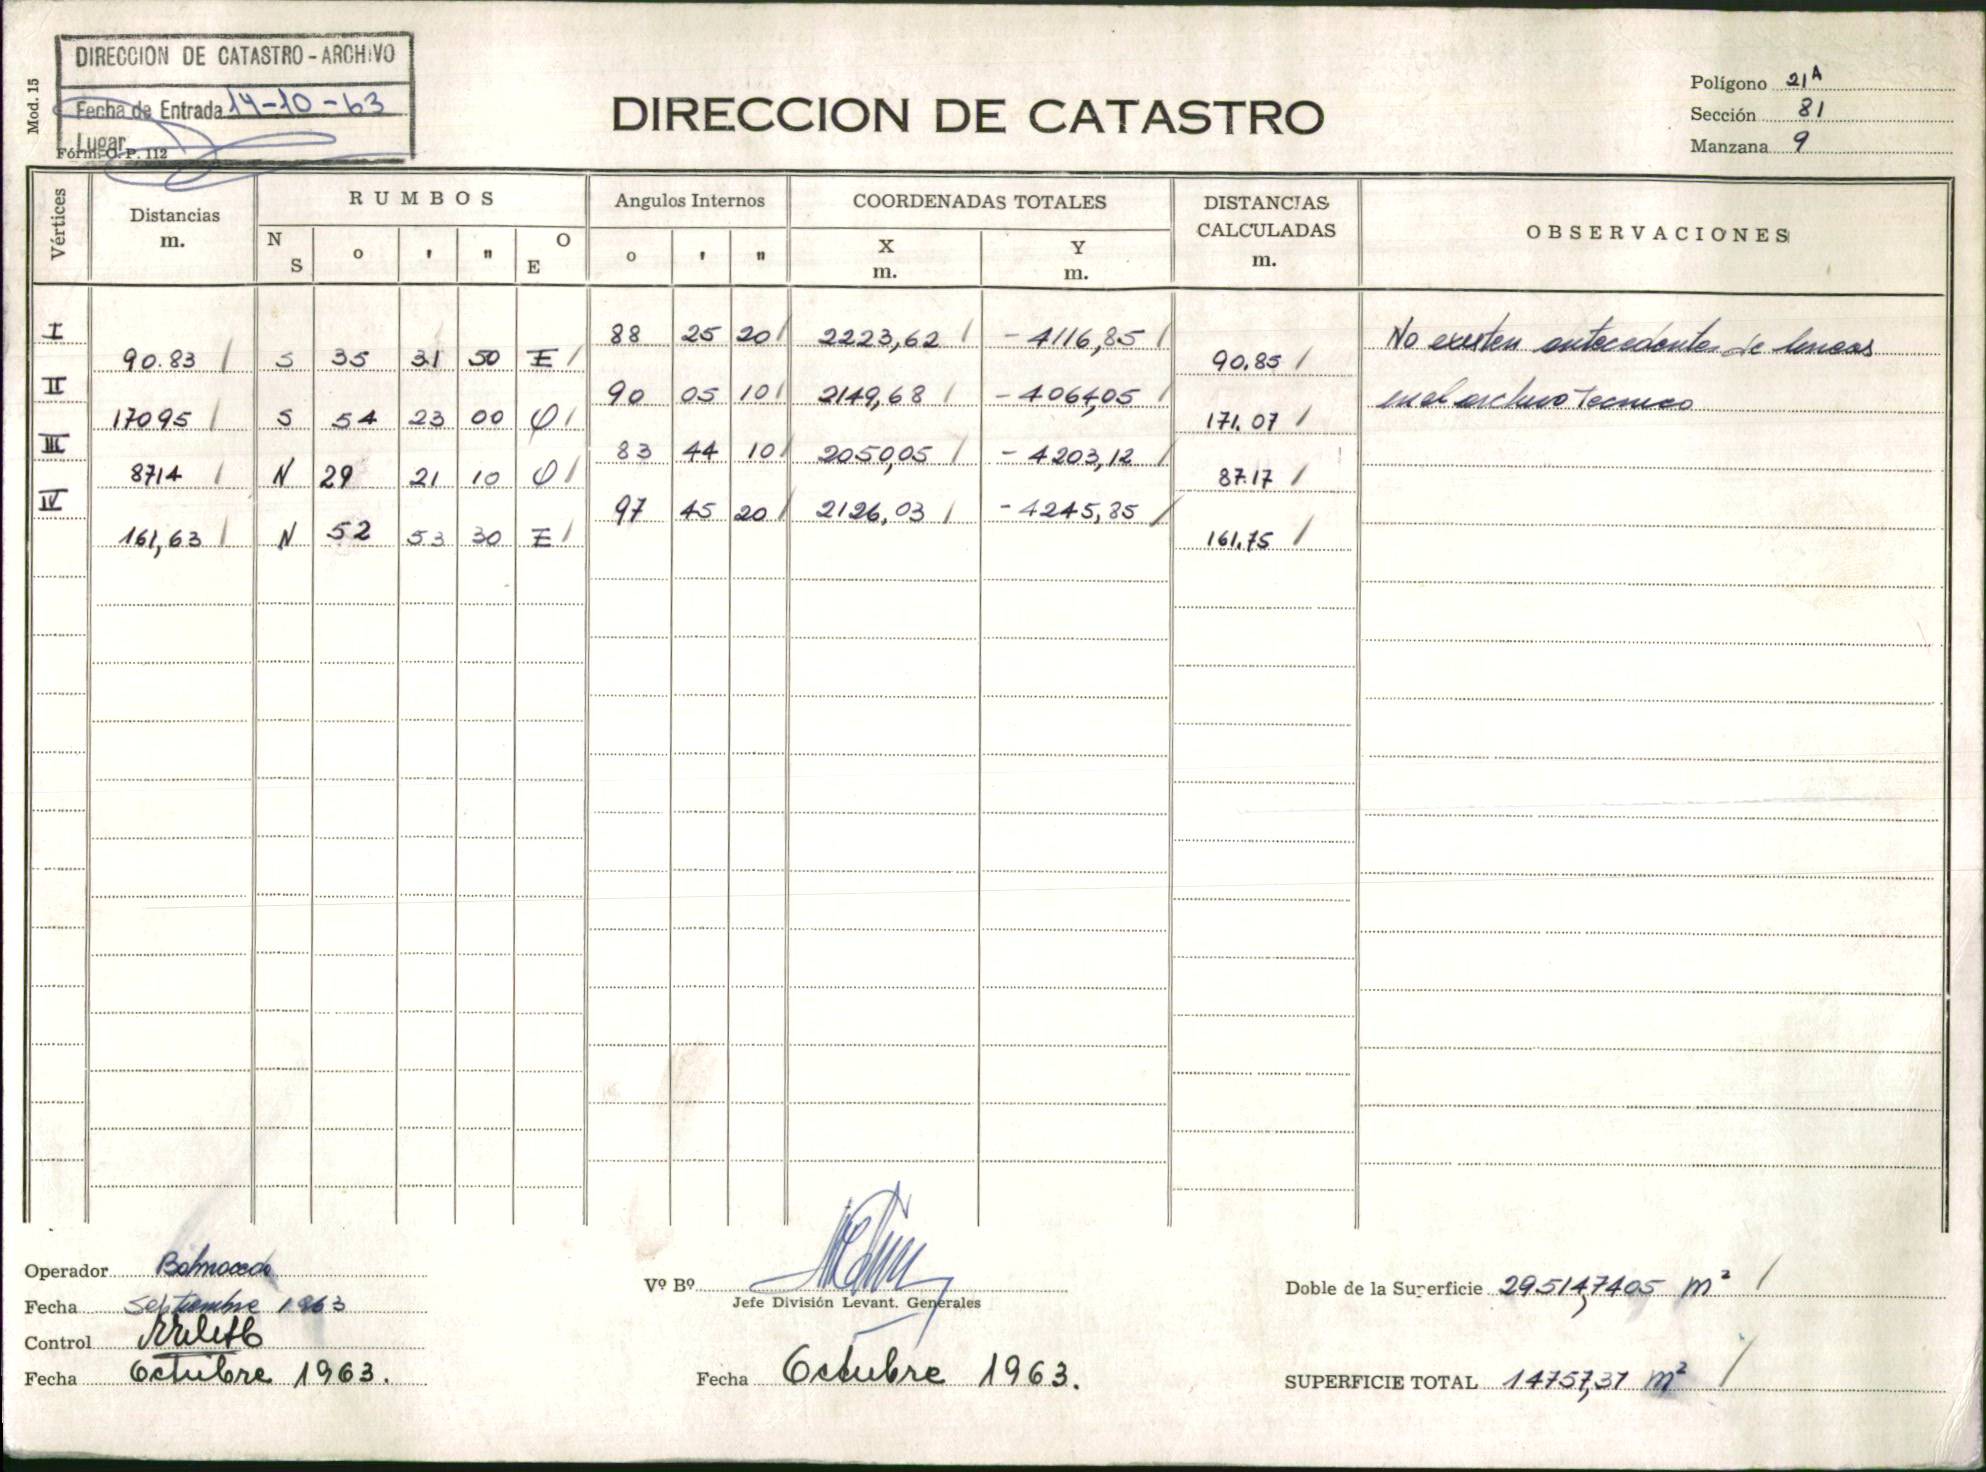 DIRECCION DE CATASTRO - ARCHIVO
Fecha de Entrada 14-10-63
Lugar
Mod. 15
Fórm. O. P. 112
DIRECCION DE CATASTRO
Polígono 21A
Sección 81
Manzana 9
Vértices
Distancias
m.
RUMBOS
N
S
o
'
"
O
E
Angulos Internos
o
'
"
COORDENADAS TOTALES
X
m.
Y
m.
DISTANCIAS
CALCULADAS
m.
OBSERVACIONES
I 88 25 20 / 2223,62 / - 4116,85 / No existen antecedentes de lineas
90.83 / S 35 31 50 E / 90.85 /
II 90 05 10 / 2149,68 / - 4064,05 / en el archivo Tecnico
17095 / S 54 23 00 O / 171.07 /
III 83 44 10 / 2050,05 / - 4203,12 /
8714 / N 29 21 10 O / 87.17 /
IV 97 45 20 / 2126,03 / - 4245,85 /
161,63 / N 52 53 30 E / 161.75 /
Operador Balmaceda
Fecha Septiembre 1963
Control
Fecha Octubre 1963.
Vº Bº
Jefe División Levant. Generales
Fecha Octubre 1963.
Doble de la Superficie 29514,7405 m² /
SUPERFICIE TOTAL 14757,37 m² /